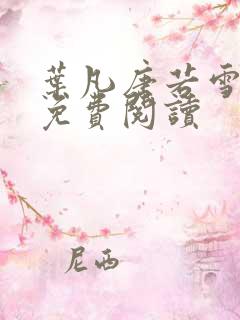 葉凡唐若雪
免費閱讀
尼西